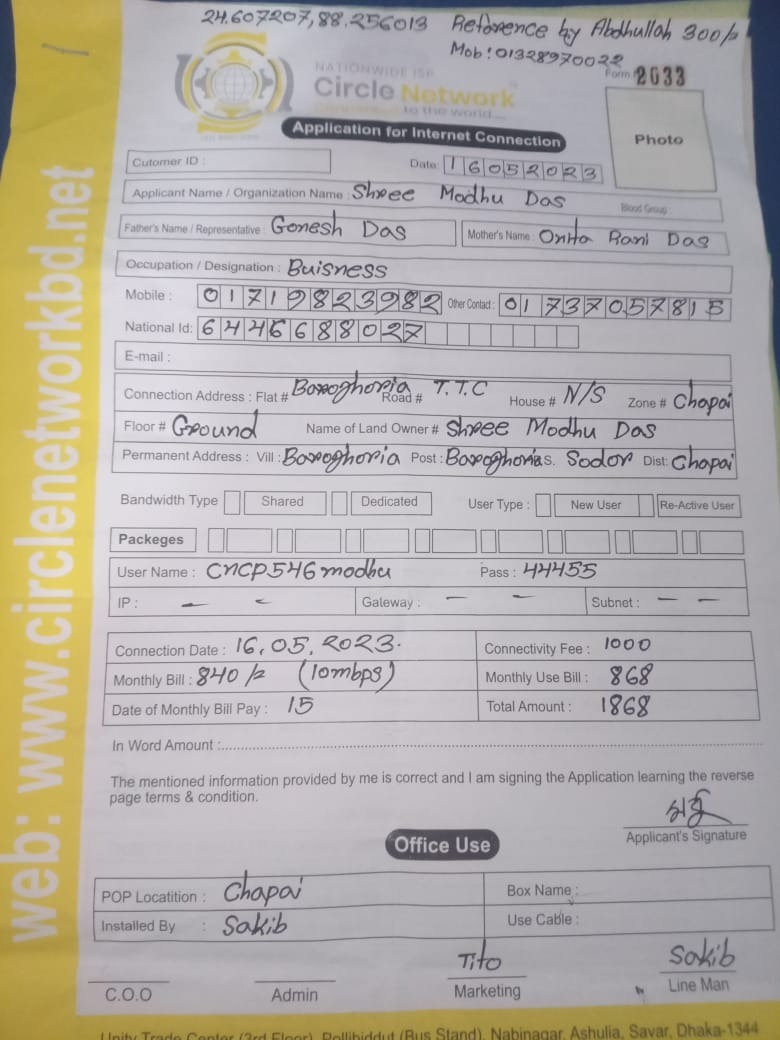 24.607207,88.256013 Reference by Abdhullah 300/=
Mob: 01328970022
Form 2033
NATIONWIDE ISP
Circle Network
Connected to the world....
Application for Internet Connection
Photo
Cutomer ID :
Date: 16052023
Applicant Name / Organization Name : Shree Modhu Das
Blood Group :
Father's Name / Representative : Gonesh Das Mother's Name : Onita Rani Das
Occupation / Designation : Buisness
Mobile : 01719823982 Other Contact : 01737057815
National Id: 6446688027
E-mail :
Connection Address : Flat # Baroghoria Road # T.T.C House # N/S Zone # Chapai
Floor # Ground Name of Land Owner # Shree Modhu Das
Permanent Address : Vill : Baroghoria Post : Baroghoria S. Sodor Dist: Chapai
Bandwidth Type Shared Dedicated User Type : New User Re-Active User
Packeges
User Name : CNCP546modhu Pass : 44455
IP : – – Gateway : – – Subnet : – –
Connection Date : 16.05.2023. Connectivity Fee : 1000
Monthly Bill : 840/= (10mbps) Monthly Use Bill : 868
Date of Monthly Bill Pay : 15 Total Amount : 1868
In Word Amount :
The mentioned information provided by me is correct and I am signing the Application learning the reverse
page terms & condition.
মধু
Applicant's Signature
Office Use
POP Locatition : Chapai Box Name :
Installed By : Sakib Use Cable :
Tito Sakib
C.O.O Admin Marketing Line Man
Unity Trade Center (3rd Floor), Pollibiddut (Bus Stand), Nabinagar, Ashulia, Savar, Dhaka-1344
web: www.circlenetworkbd.net